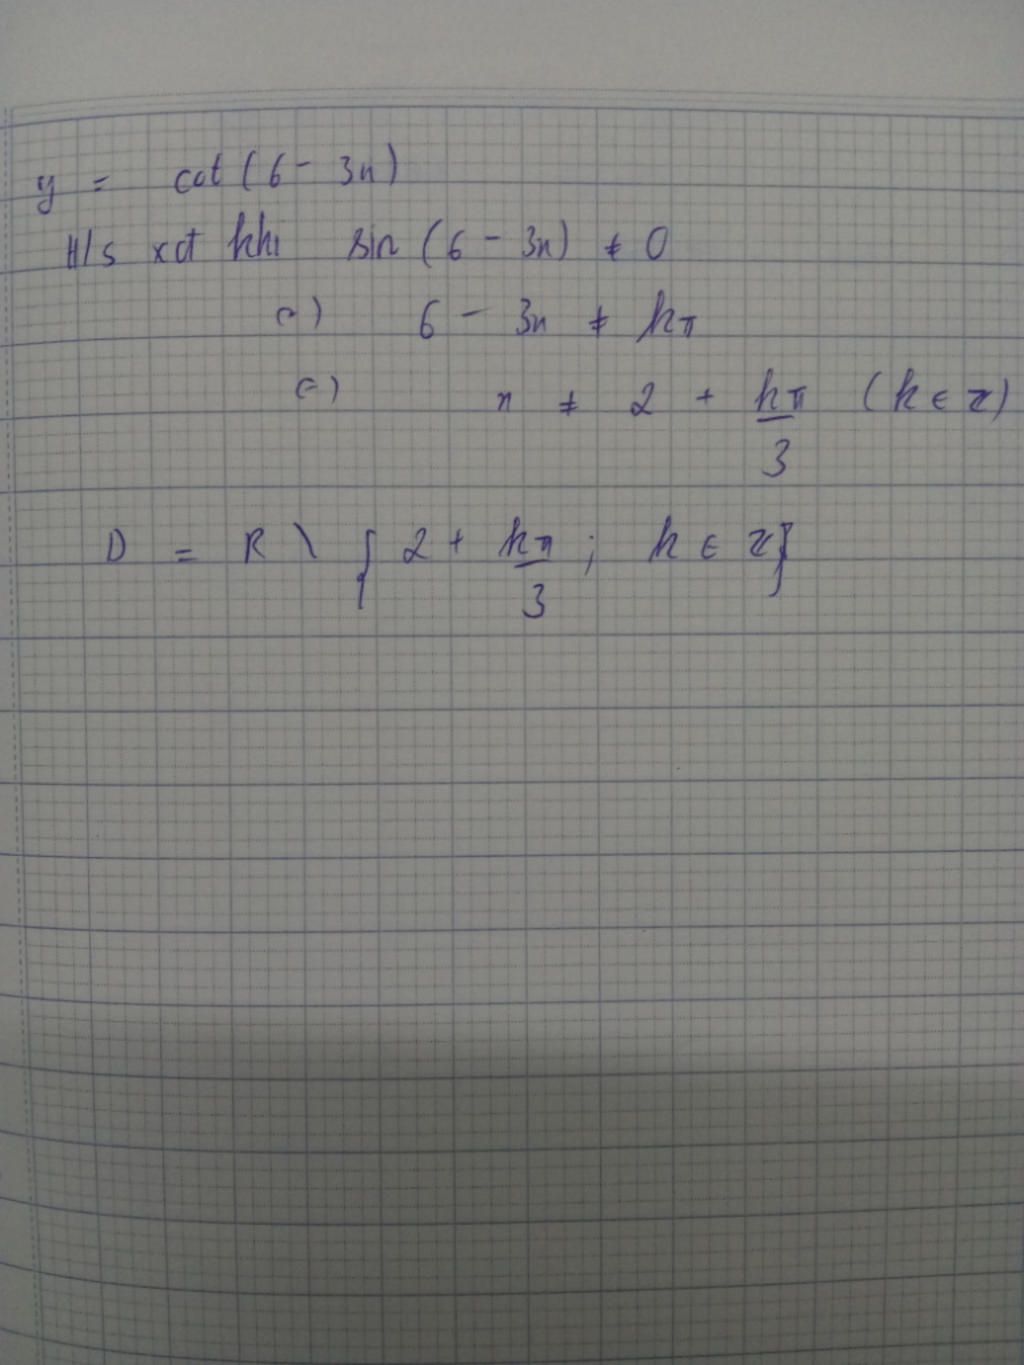 y = cot (6 - 3x)
H/s xđ khi sin (6 - 3x) ≠ 0
(=) 6 - 3x ≠ kπ
(=) x ≠ 2 + kπ/3 (k ∈ Z)
D = R \ { 2 + kπ/3 ; k ∈ Z}